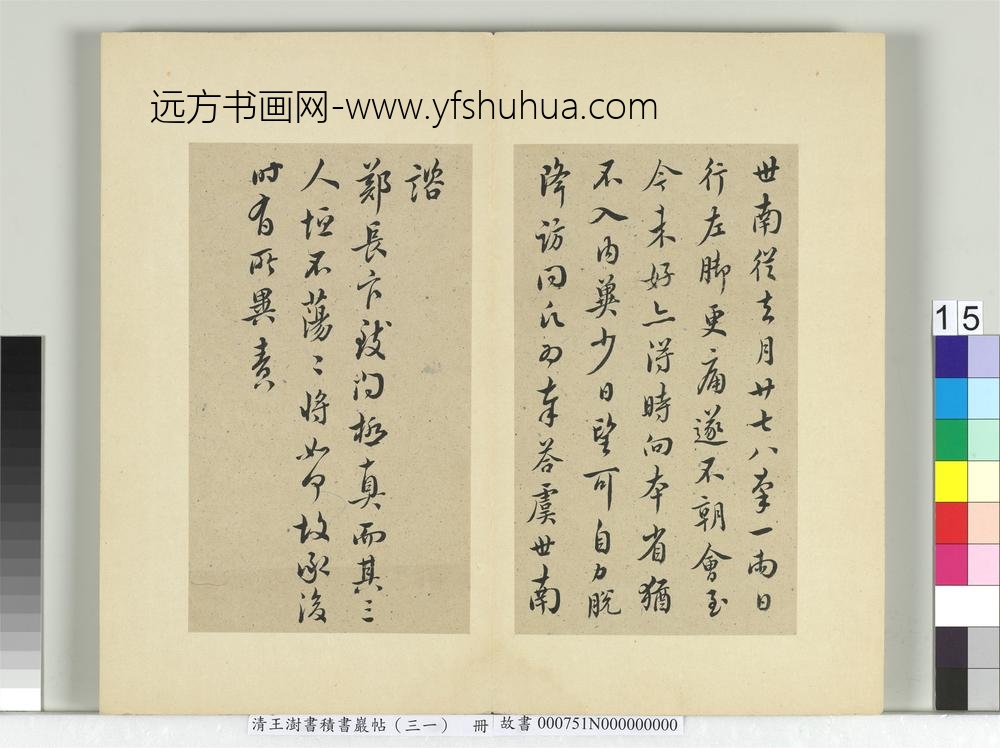 远方书画网-www.yfshuhua.com
世南從去月廿七八率一兩日
行左脚更痛遂不朝會至
今未好亦得時向本省猶
不入内冀少日望可自力脱
降訪問願為奉答虞世南
諮
鄭長官致問極真而其三
人恒不蕩〻將如何故承後
時有所異責
15
清王澍書積書巖帖（三一） 冊 故書 000751N000000000